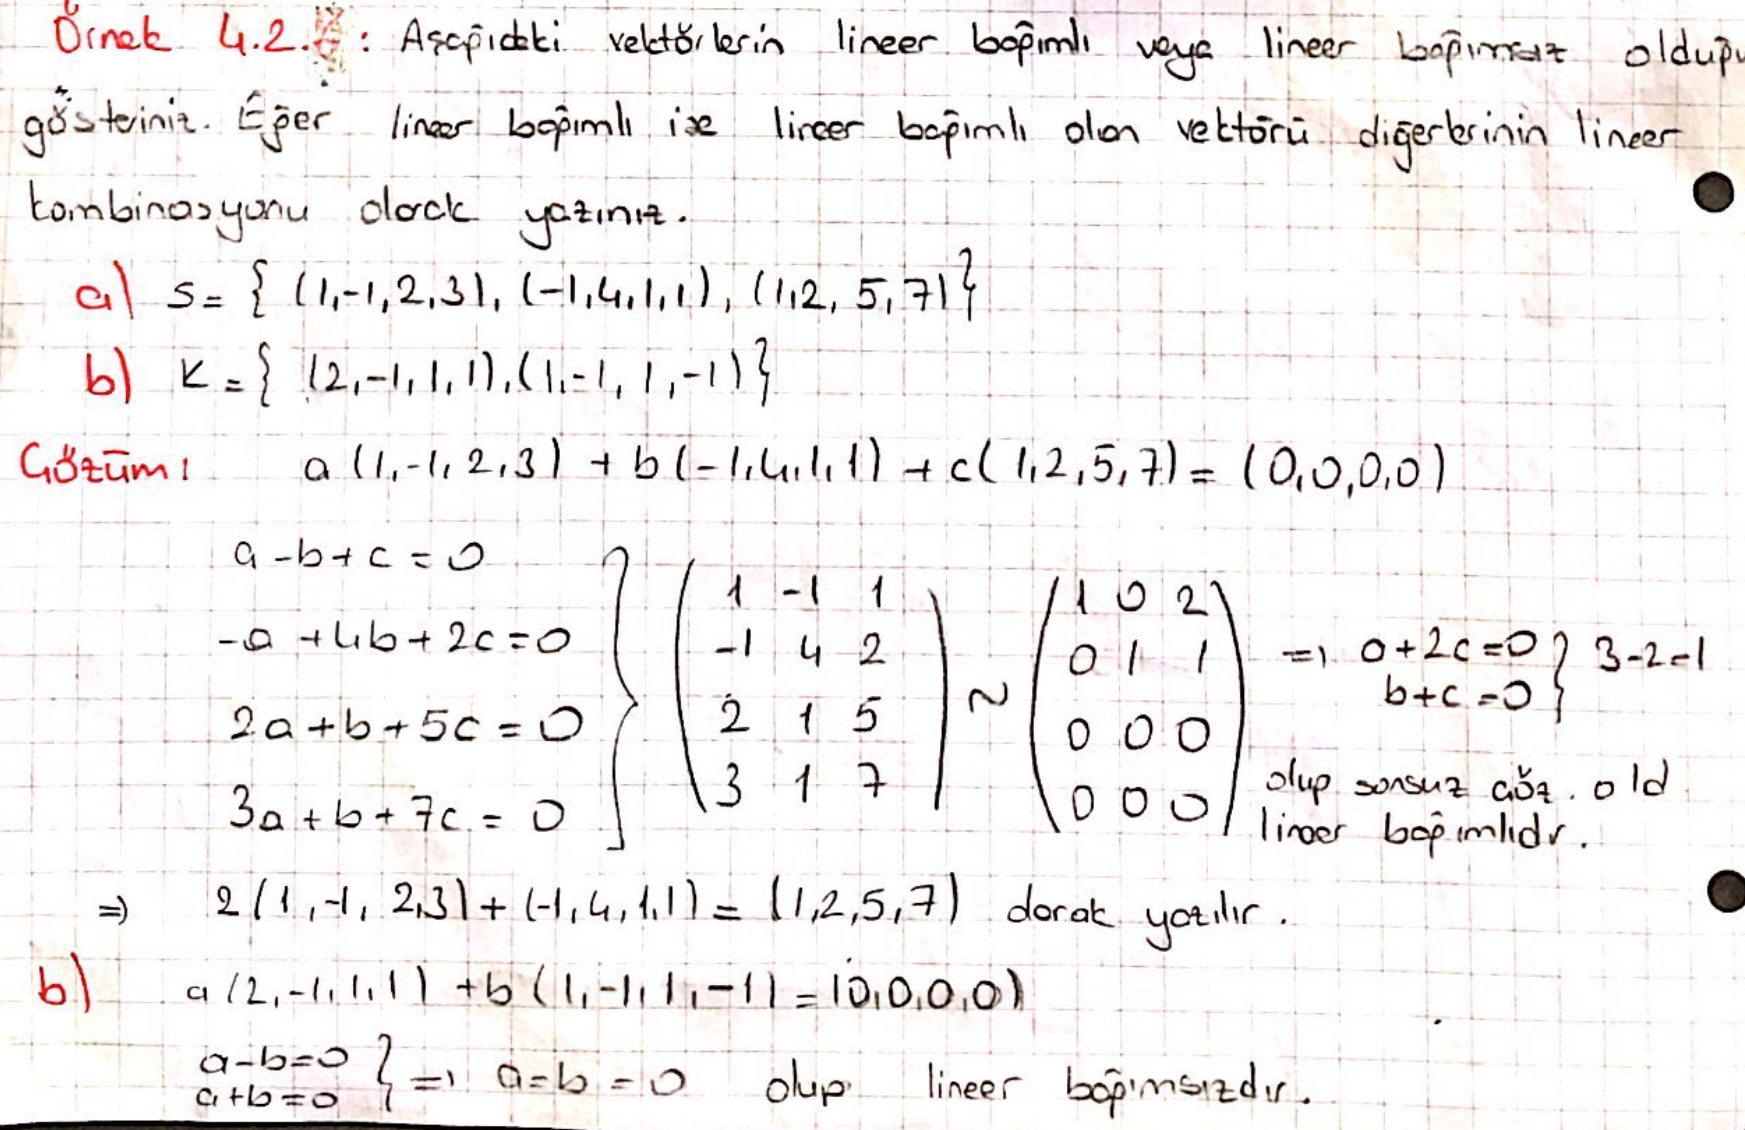 Örnek 4.2. : Aşağıdaki vektörlerin lineer bağımlı veya lineer bağımsız olduğu
gösteriniz. Eğer lineer bağımlı ise lineer bağımlı olan vektörü diğerlerinin lineer
kombinasyonu olarak yazınız.
a) S = { (1,-1,2,3), (-1,4,1,1), (1,2,5,7) }
b) K = { (2,-1,1,1), (1,-1,1,-1) }
Çözüm: a(1,-1,2,3) + b(-1,4,1,1) + c(1,2,5,7) = (0,0,0,0)
a - b + c = 0
-a + 4b + 2c = 0
2a + b + 5c = 0
3a + b + 7c = 0
1 -1 1
-1 4 2
2 1 5
3 1 7
~
1 0 2
0 1 1
0 0 0
0 0 0
=> a+2c=0
b+c=0
} 3-2=1
olup sonsuz çöz. old
lineer bağımlıdır.
=> 2(1,-1,2,3) + (-1,4,1,1) = (1,2,5,7) olarak yazılır.
b) a(2,-1,1,1) + b(1,-1,1,-1) = (0,0,0,0)
a-b=0
a+b=0
} => a=b=0 olup lineer bağımsızdır.